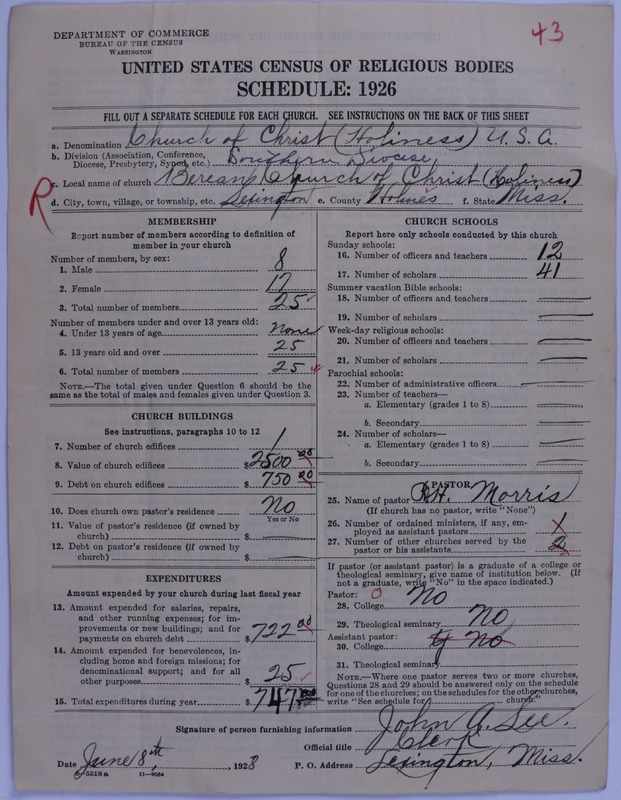 DEPARTMENT OF COMMERCE
BUREAU OF THE CENSUS
WASHINGTON
43
UNITED STATES CENSUS OF RELIGIOUS BODIES
SCHEDULE: 1926
FILL OUT A SEPARATE SCHEDULE FOR EACH CHURCH. SEE INSTRUCTIONS ON THE BACK OF THIS SHEET
a. Denomination Church of Christ (Holiness) U.S.A.
b. Division (Association, Conference, Diocese, Presbytery, Synod, etc.) Southern Diocese
c. Local name of church Berean Church of Christ (Holiness)
R
d. City, town, village, or township, etc. Lexington e. County Holmes f. State Miss.
MEMBERSHIP
Report number of members according to definition of
member in your church
Number of members, by sex:
1. Male 8
2. Female 17
3. Total number of members 25
Number of members under and over 13 years old:
4. Under 13 years of age None
5. 13 years old and over 25
6. Total number of members 25
NOTE.—The total given under Question 6 should be
same as the total of males and females given under Question 3.
CHURCH BUILDINGS
See instructions, paragraphs 10 to 12
7. Number of church edifices 1
8. Value of church edifices $2500 00
9. Debt on church edifices $750 00
10. Does church own pastor's residence No
Yes or No
11. Value of pastor's residence (if owned by
church) $
12. Debt on pastor's residence (if owned by
church) $
EXPENDITURES
Amount expended by your church during last fiscal year
13. Amount expended for salaries, repairs,
and other running expenses; for im-
provements or new buildings; and for
payments on church debt $722 00
14. Amount expended for benevolences, in-
cluding home and foreign missions; for
denominational support; and for all
other purposes $25
15. Total expenditures during year $747 00
CHURCH SCHOOLS
Report here only schools conducted by this church
Sunday schools:
16. Number of officers and teachers 12
17. Number of scholars 41
Summer vacation Bible schools:
18. Number of officers and teachers
19. Number of scholars
Week-day religious schools:
20. Number of officers and teachers
21. Number of scholars
Parochial schools:
22. Number of administrative officers
23. Number of teachers—
a. Elementary (grades 1 to 8)
b. Secondary
24. Number of scholars—
a. Elementary (grades 1 to 8)
b. Secondary
PASTOR
25. Name of pastor R.H. Morris
(If church has no pastor, write "None")
26. Number of ordained ministers, if any, em-
ployed as assistant pastors 1
27. Number of other churches served by the
pastor or his assistants 2
If pastor (or assistant pastor) is a graduate of a college or
theological seminary, give name of institution below. (If
not a graduate, write "No" in the space indicated.)
Pastor: 0
28. College No
29. Theological seminary No
Assistant pastor:
30. College No
31. Theological seminary
NOTE.—Where one pastor serves two or more churches,
Questions 28 and 29 should be answered only on the schedule
for one of the churches; on the schedules for the other churches,
write "See schedule for church."
Signature of person furnishing information John A. Lee.
Official title Clerk
Date June 8th, 1928 P. O. Address Lexington, Miss.
8-5518a 11-9054